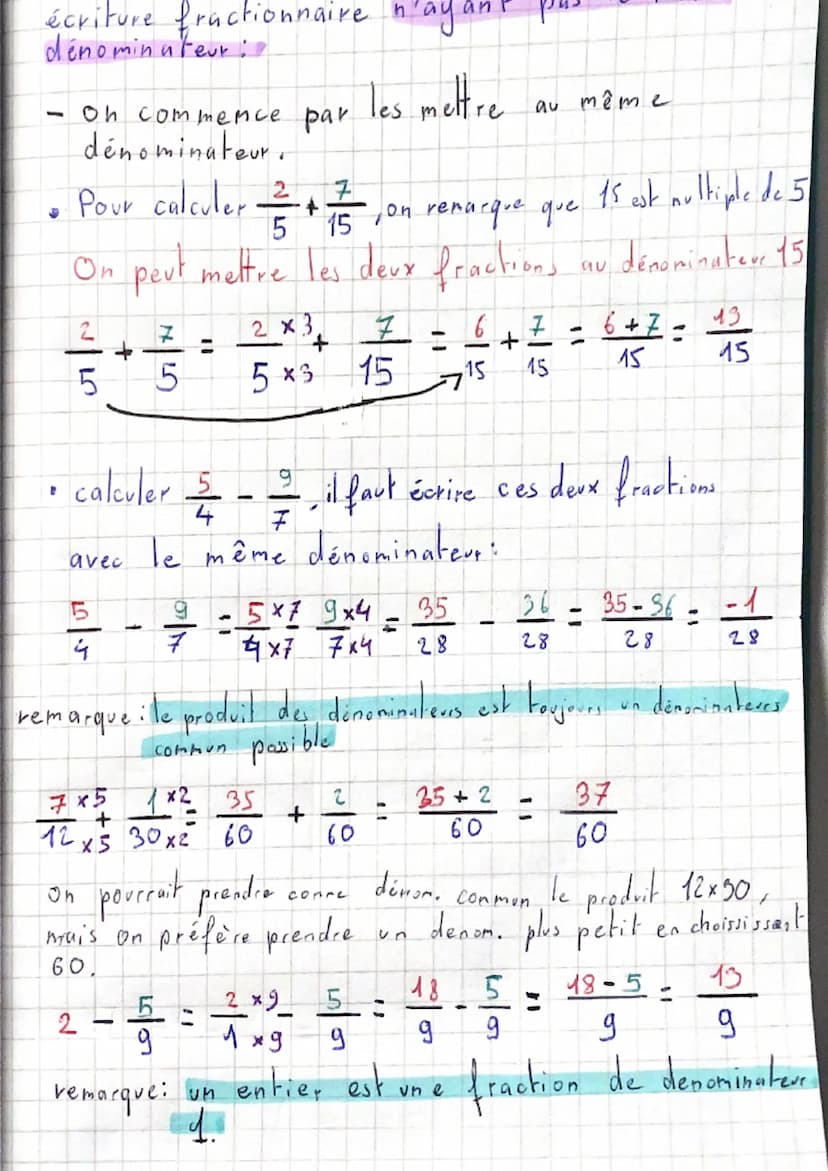 écriture fractionnaire n'ayant pas
dénominateur :
- On commence par les mettre au même
dénominateur.
• Pour calculer 2/5 + 7/15, on remarque que 15 est multiple de 5
On peut mettre les deux fractions au dénominateur 15
2/5 + 7/5 = 2 x 3/5 x 3 + 7/15 = 6/15 + 7/15 = 6 + 7/15 = 13/15
• calculer 5/4 - 9/7, il faut écrire ces deux fractions
avec le même dénominateur :
5/4 - 9/7 = 5 x 7/4 x 7 9 x 4/7 x 4 = 35/28 - 36/28 = 35 - 36/28 = -1/28
remarque : le produit des dénominateurs est toujours un dénominateurs
commun possible
7 x 5/12 x 5 + 1 x 2/30 x 2 = 35/60 + 2/60 = 35 + 2/60 = 37/60
On pourrait prendre comme dénom. commun le produit 12 x 30,
mais on préfère prendre un denom. plus petit en choississant
60.
2 - 5/9 = 2 x 9/1 x 9 - 5/9 = 18/9 - 5/9 = 18 - 5/9 = 13/9
remarque : un entier est une fraction de denominateur
1.